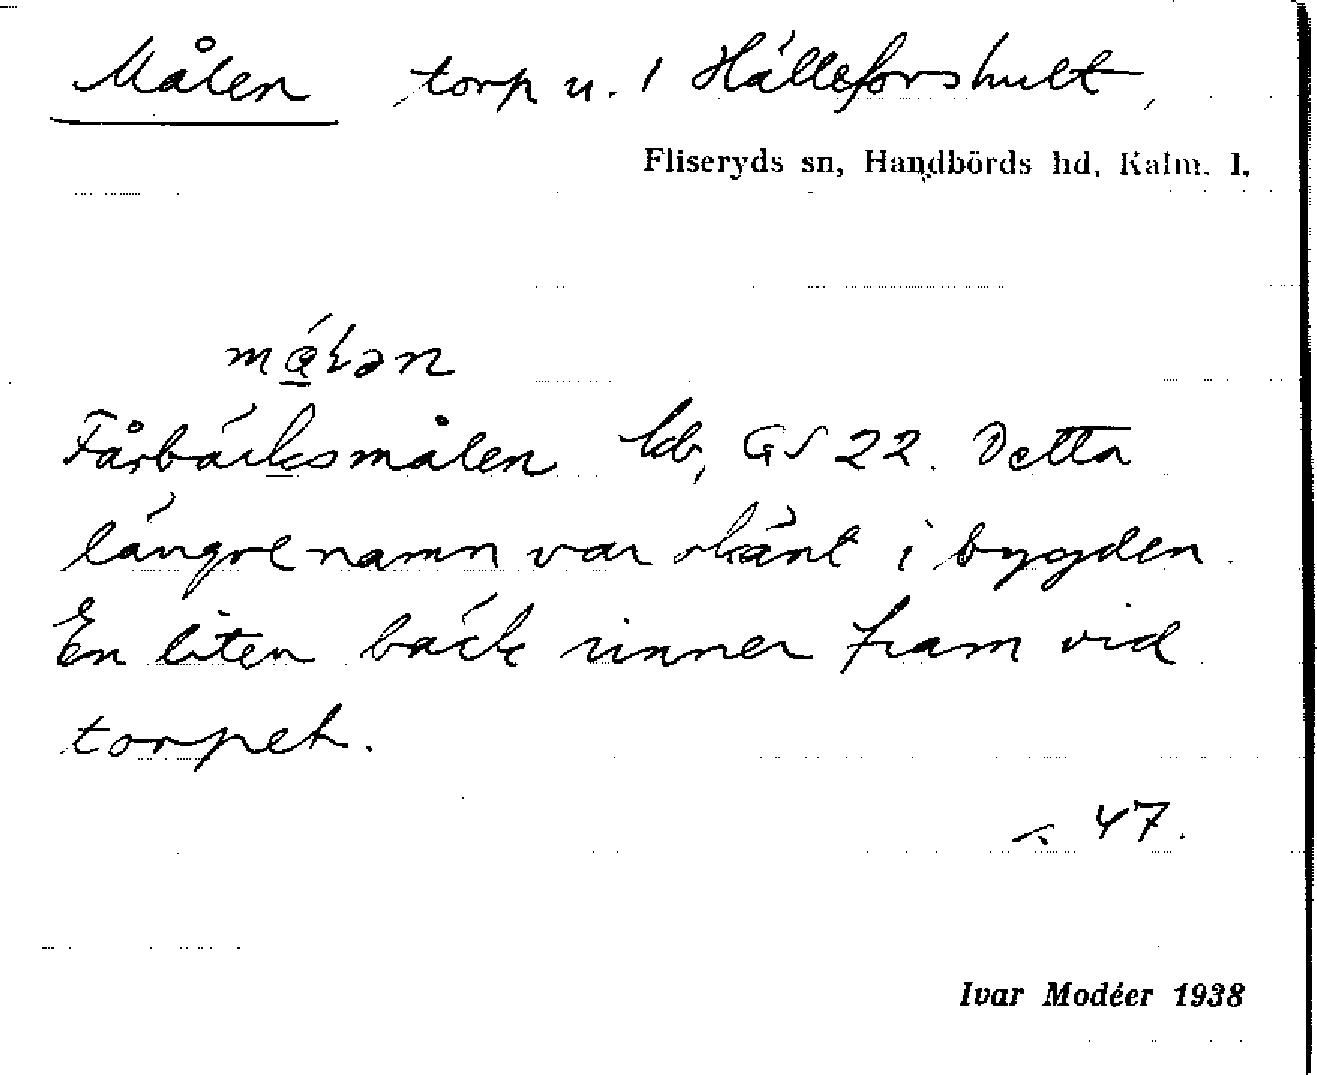 Målen torp u. 1 Hälleforshult,
Fliseryds sn, Handbörds hd, Kalm. l.
Fårbäcksmålen kb, GS 22. Detta
längre namn var okänt i bygden
En liten bäck rinner fram vid
torpet.
s. 47.
Ivar Modéer 1938